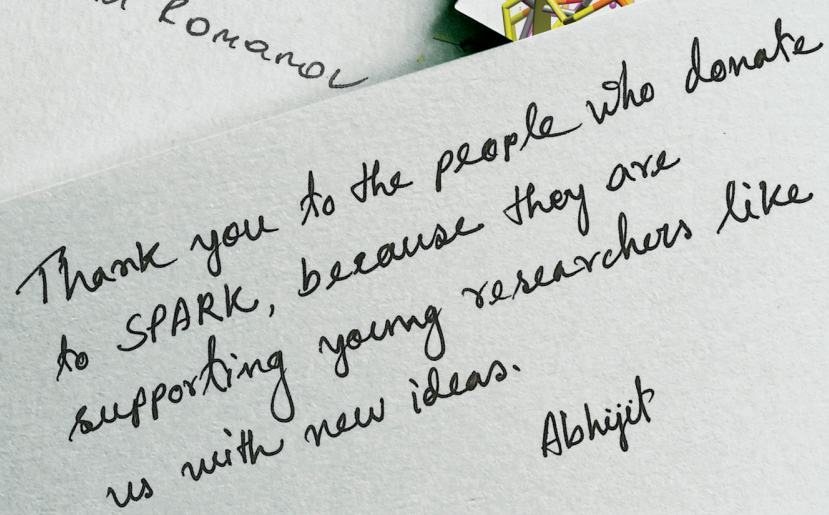 Romanov
Thank you to the people who donate
to SPARK, because they are
supporting young researchers like
us with new ideas.
Abhijit